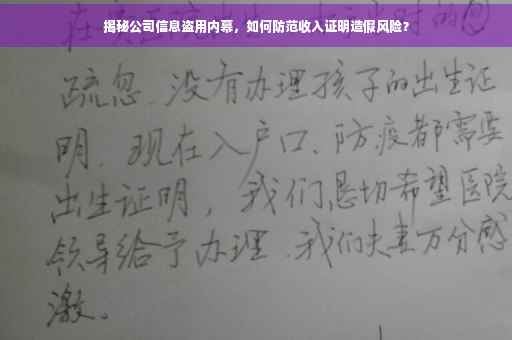 揭秘公司信息盗用内幕，如何防范收入证明造假风险？
疏忽、没有办理孩子的出生证
明、现在入户口、防疫都需要
出生证明，我们恳切希望医院
领导给予办理、我们夫妻万分感
激。